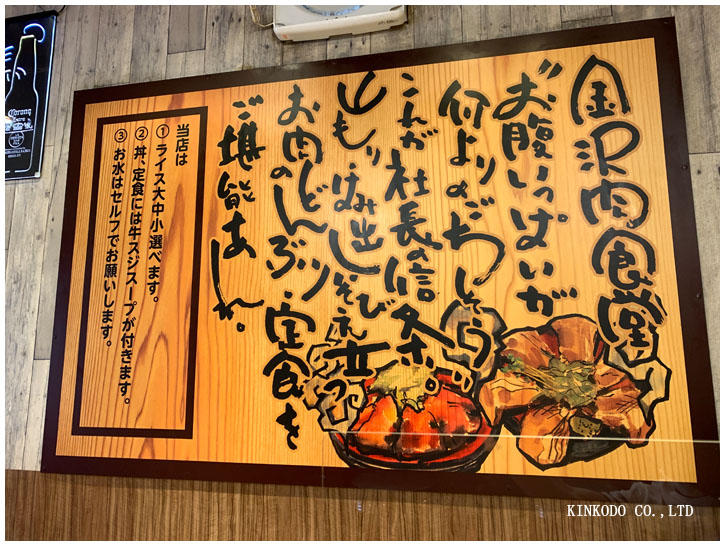 金沢肉食堂
お腹いっぱいが
何よりのごちそう!!
これが社長の信条。
山もり はみ出し そびえ立つ
お肉のどんぶり 定食を
ご堪能あれ。
当店は
① ライス大中小選べます。
② 丼、定食には牛スジスープが付きます。
③ お水はセルフでお願いします。
Corona
Extra
KINKODO CO.,LTD